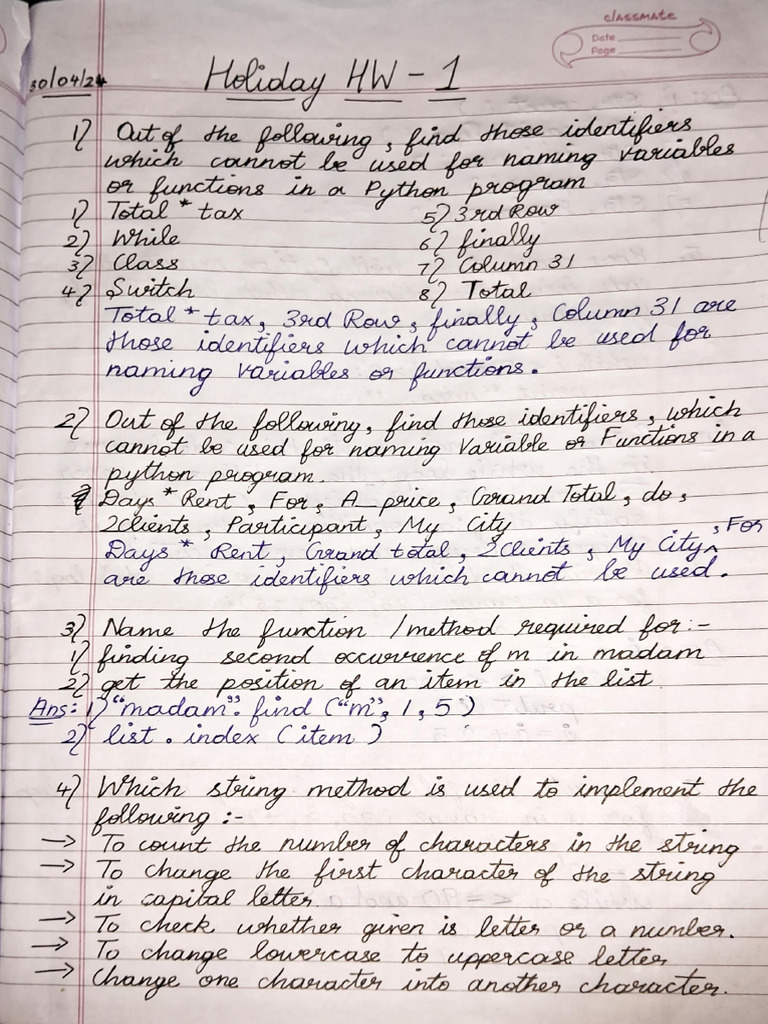 classmate
Date
Page
30/04/24
Holiday HW - 1
1) Out of the following, find those identifiers
which cannot be used for naming variables
or functions in a Python program
1) Total * tax 5) 3rd Row
2) While 6) finally
3) Class 7) Column 31
4) Switch 8) Total
Total * tax, 3rd Row, finally, Column 31 are
those identifiers which cannot be used for
naming variables or functions.
2) Out of the following, find those identifiers, which
cannot be used for naming Variable or Functions in a
python program.
Days * Rent, For, A_price, Grand Total, do,
2Clients, Participant, My City
Days * Rent, Grand total, 2Clients, My City, For
are those identifiers which cannot be used.
3) Name the function / method required for:-
1) finding second occurrence of m in madam
2) get the position of an item in the list
Ans: 1) "madam". find ("m", 1, 5)
2) list . index (item )
4) Which string method is used to implement the
following :-
→ To count the number of characters in the string
→ To change the first character of the string
in capital letter
→ To check whether given is letter or a number.
→ To change lowercase to uppercase letter
→ Change one character into another character.